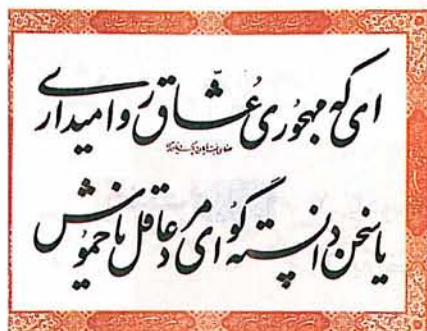 ای که مهجوری عُشّاق روا میداری
یا سخن دانسته گو ای مرد عاقل یا خموش